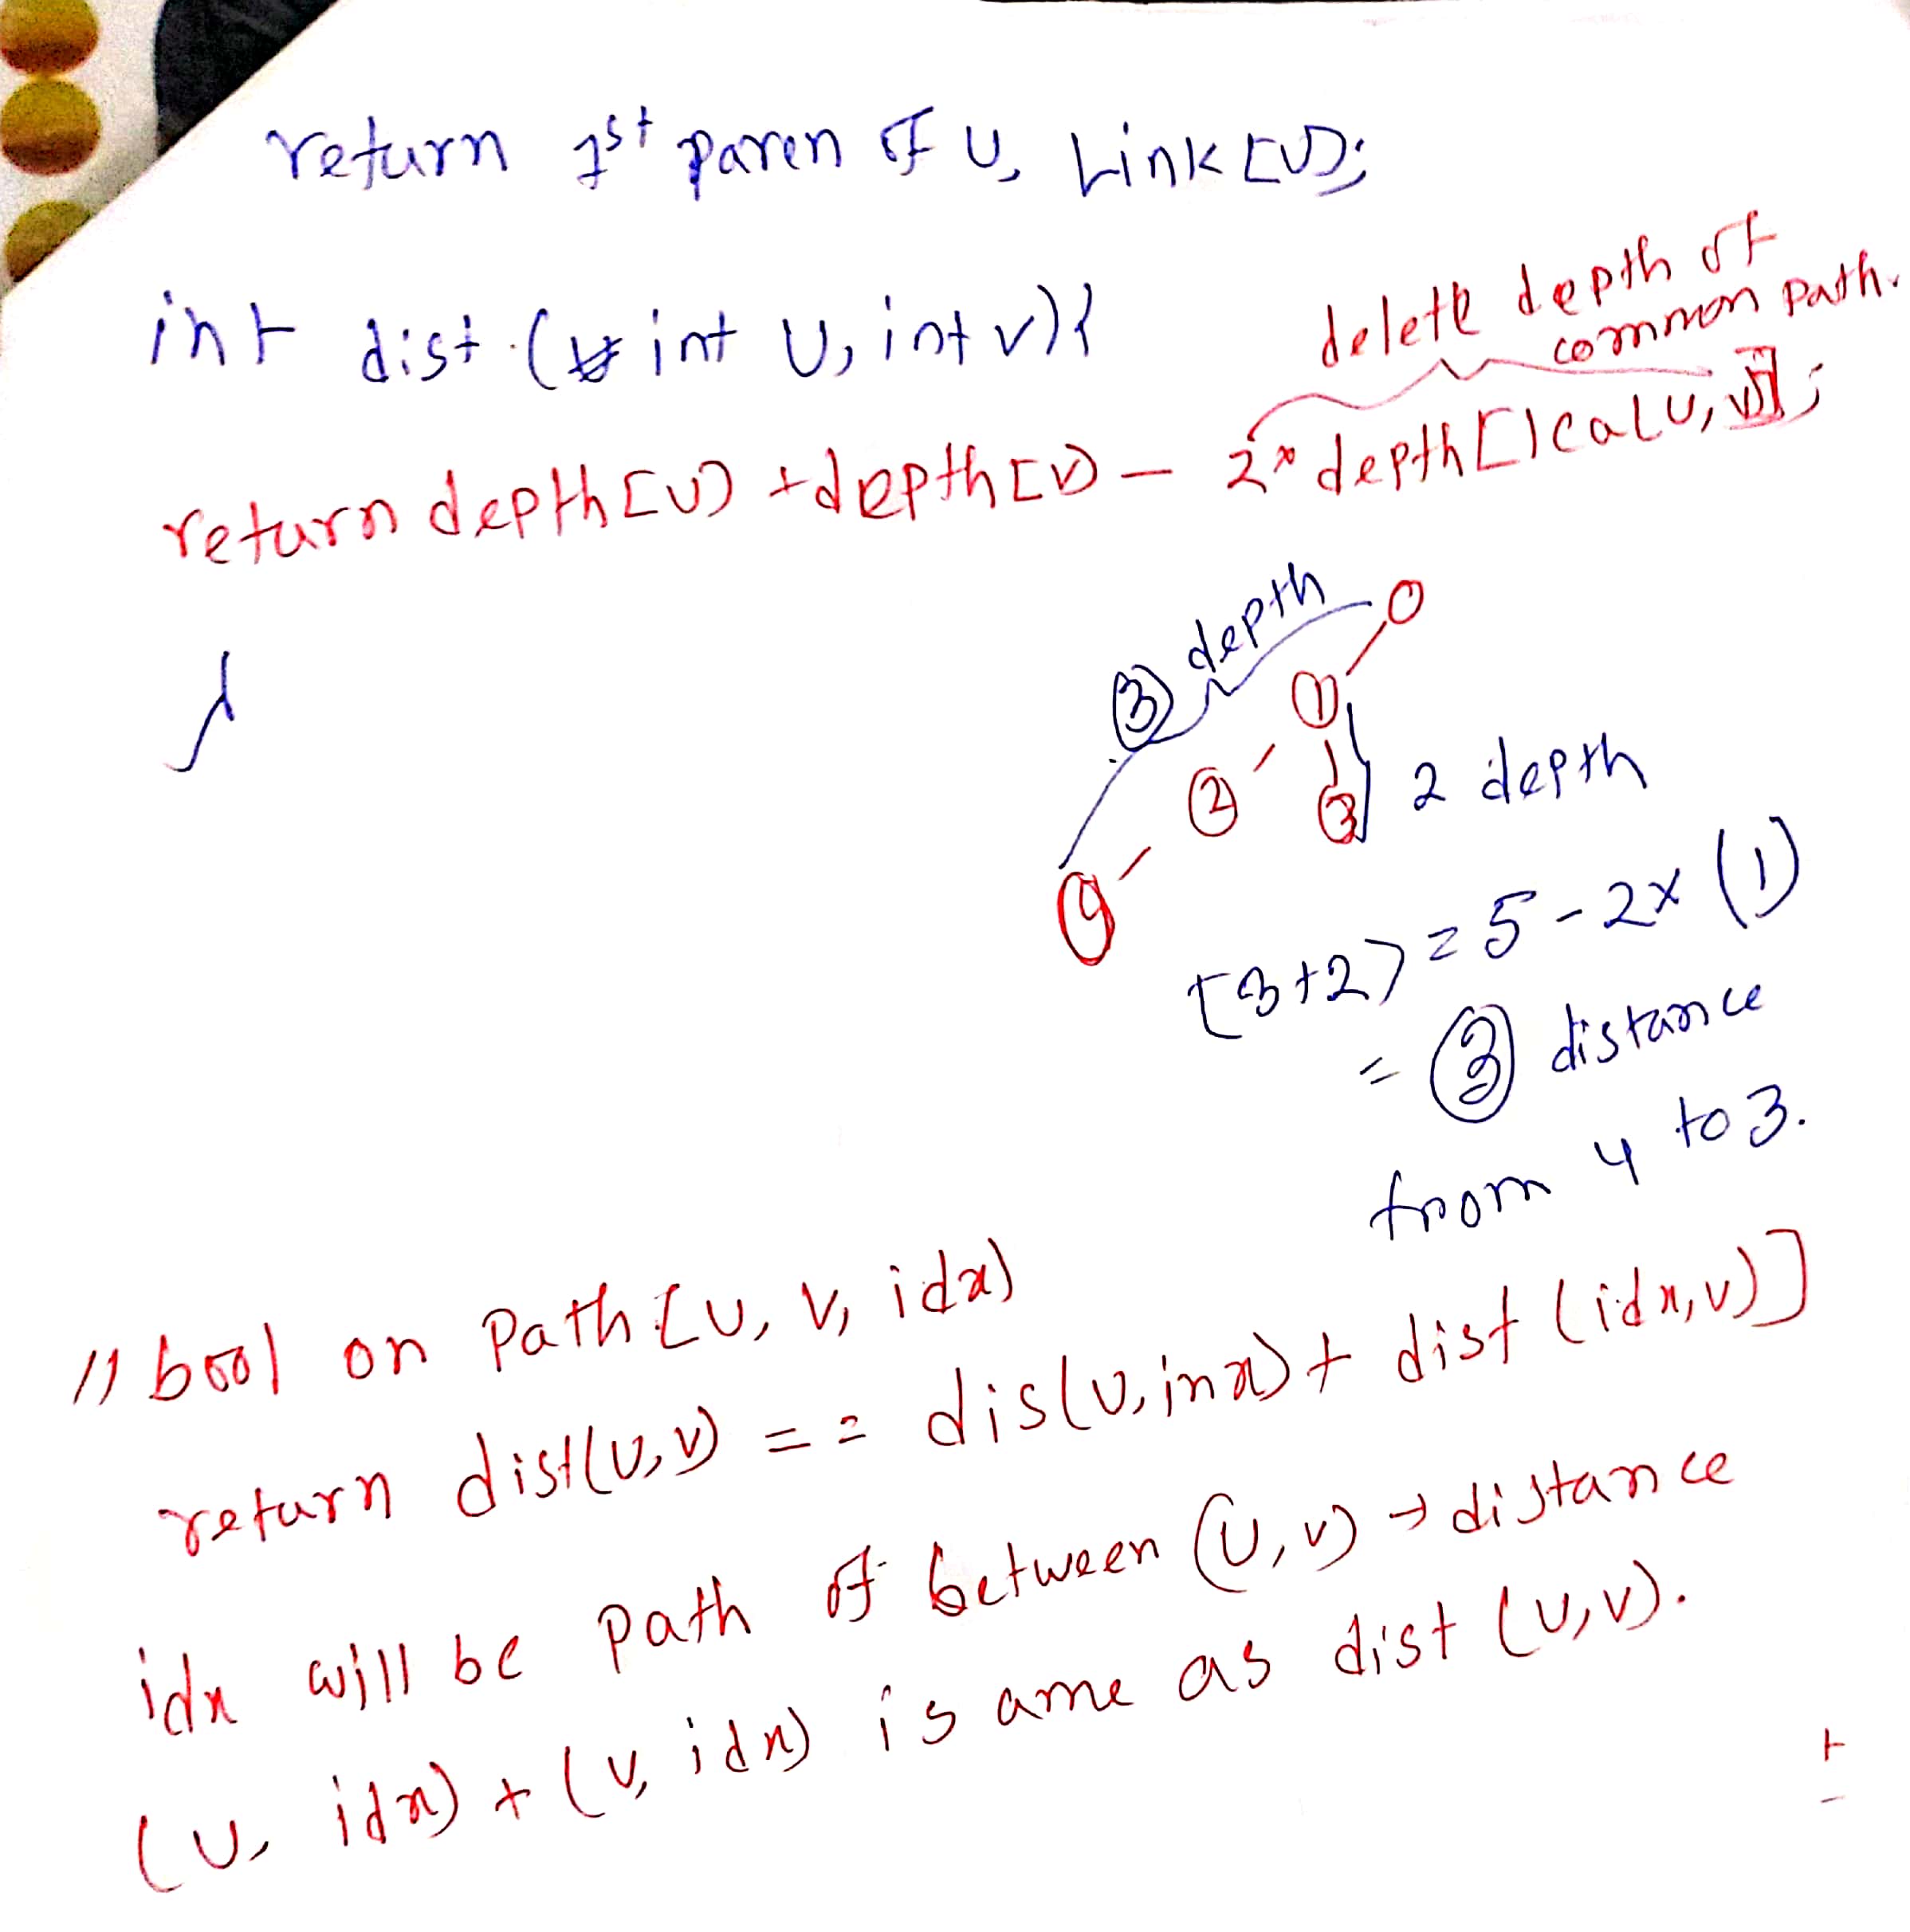 return 1st paren of u, Link[u];
int dist (int u, int v){
delete depth of
common path.
return depth[u] + depth[v] - 2* depth[lca[u, v]];
}
3 depth
0
1
2
3
2 depth
4
[3+2] = 5 - 2x (1)
= 3 distance
from 4 to 3.
// bool on Path [u, v, idx)
return dist(u,v) == dis(u, inx) + dist (idx, v)]
idx will be path of between (u, v) → distance
(u, idx) + (v, idx) is ame as dist (u,v).